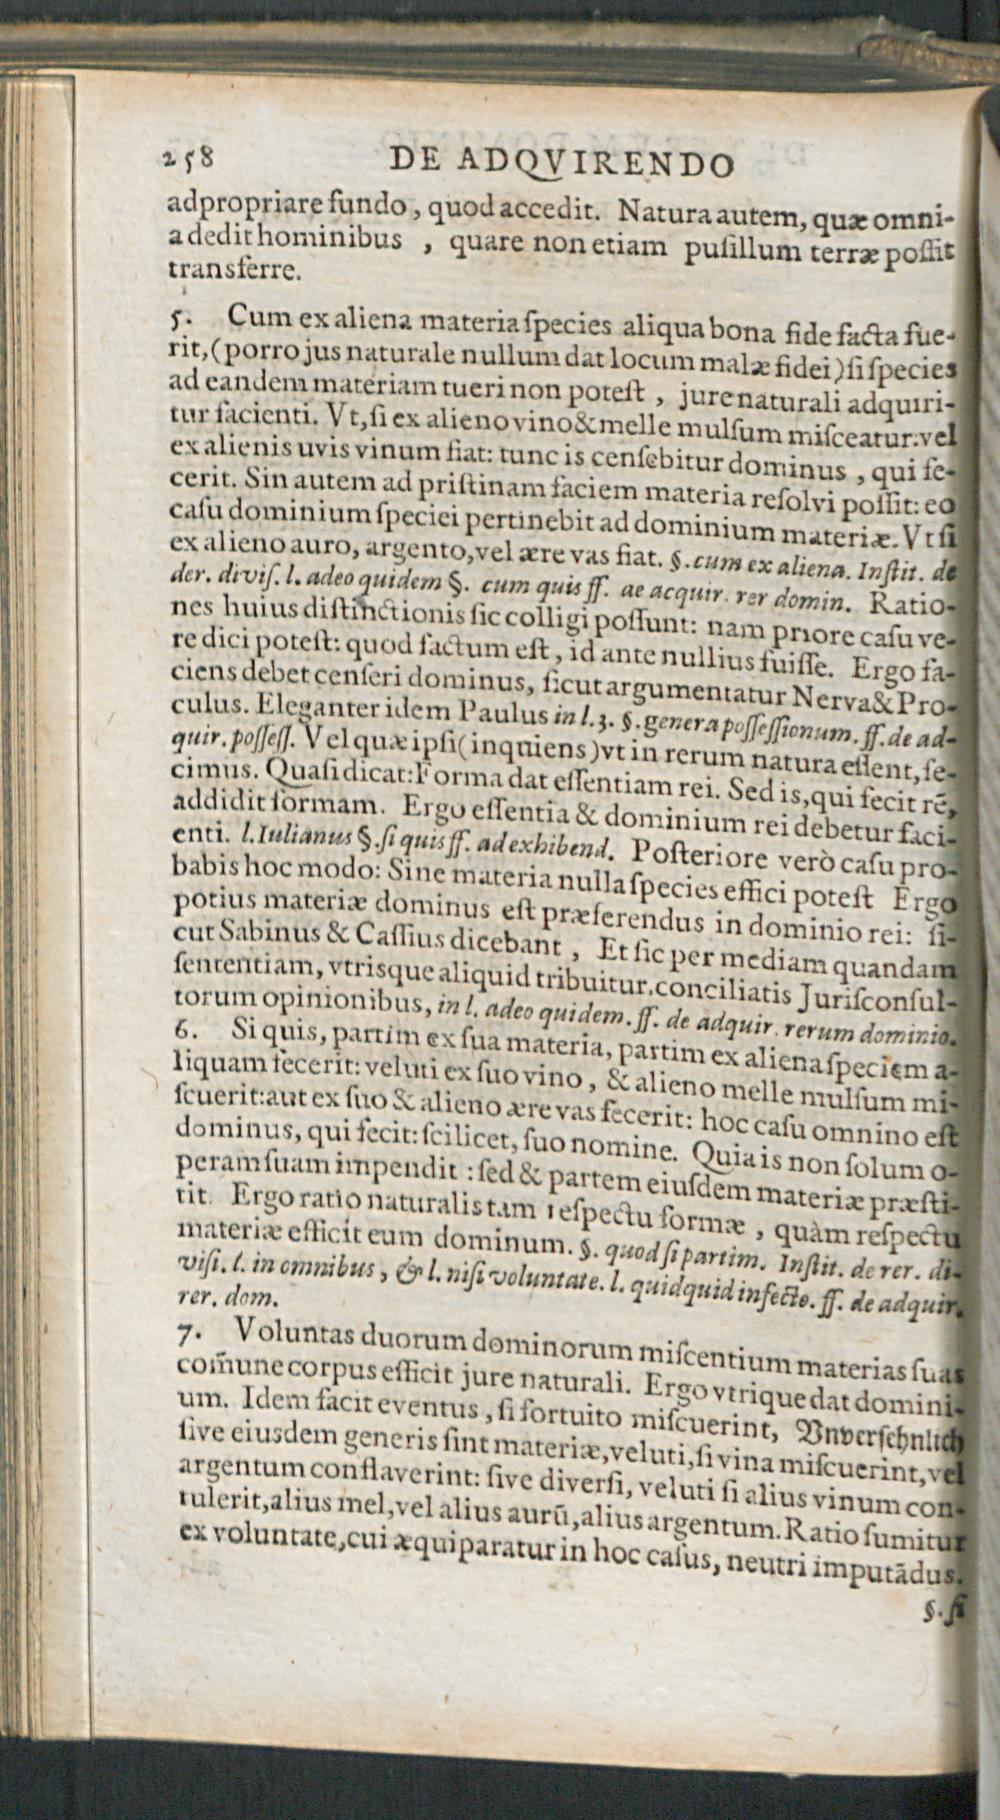 258 DE ADQVIRENDO
adpropriare fundo, quod accedit. Natura autem, quæ omni-
a dedit hominibus , quare non etiam pusillum terræ possit
transferre.
5. Cum ex aliena materia species aliqua bona fide facta fue-
rit, (porro jus naturale nullum dat locum malæ fidei) si species
ad eandem materiam tueri non potest , jure naturali adquiri-
tur facienti. Vt, si ex alieno vino & melle mulsum misceatur: vel
ex alienis uvis vinum fiat: tunc is censebitur dominus , qui fe-
cerit. Sin autem ad pristinam faciem materia resolvi possit: eo
casu dominium speciei pertinebit ad dominium materiæ. Vt si
ex alieno auro, argento, vel ære vas fiat. §. cum ex aliena. Instit. de
der. divis. l. adeo quidem §. cum quis ff. ae acquir. rer domin. Ratio-
nes huius distinctionis sic colligi possunt: nam priore casu ve-
re dici potest: quod factum est, id ante nullius fuisse. Ergo fa-
ciens debet censeri dominus, sicut argumentatur Nerva & Pro-
culus. Eleganter idem Paulus in l. 3. §. genera possessionum. ff. de ad-
quir. possess. Vel quæ ipsi (inquiens) vt in rerum natura essent, fe-
cimus. Quasi dicat: Forma dat essentiam rei. Sed is, qui fecit rē,
addidit formam. Ergo essentia & dominium rei debetur faci-
enti. l. Iulianus §. si quis ff. ad exhibend. Posteriore verò casu pro-
babis hoc modo: Sine materia nulla species effici potest Ergo
potius materiæ dominus est præferendus in dominio rei: si-
cut Sabinus & Cassius dicebant , Et sic per mediam quandam
sententiam, vtrisque aliquid tribuitur, conciliatis Jurisconsul-
torum opinionibus, in l. adeo quidem. ff. de adquir. rerum dominio.
6. Si quis, partim ex sua materia, partim ex aliena speciem a-
liquam fecerit: veluti ex suo vino, & alieno melle mulsum mi-
scuerit: aut ex suo & alieno ære vas fecerit: hoc casu omnino est
dominus, qui fecit: scilicet, suo nomine. Quia is non solum o-
peram suam impendit : sed & partem eiusdem materiæ præsti-
tit. Ergo ratio naturalis tam respectu formæ , quàm respectu
materiæ efficit eum dominum. §. quod si partim. Instit. de rer. di-
visi. l. in omnibus, & l. nisi voluntate. l. quidquid infecto. ff. de adquir.
rer. dom.
7. Voluntas duorum dominorum miscentium materias suas
com̃une corpus efficit jure naturali. Ergo vtrique dat domini-
um. Idem facit eventus, si fortuito miscuerint, Vnversehnlich
sive eiusdem generis sint materiæ, veluti, si vina miscuerint, vel
argentum conflaverint: sive diversi, veluti si alius vinum con-
tulerit, alius mel, vel alius aurū, alius argentum. Ratio sumitur
ex voluntate, cui æquiparatur in hoc casus, neutri imputādus.
§. si